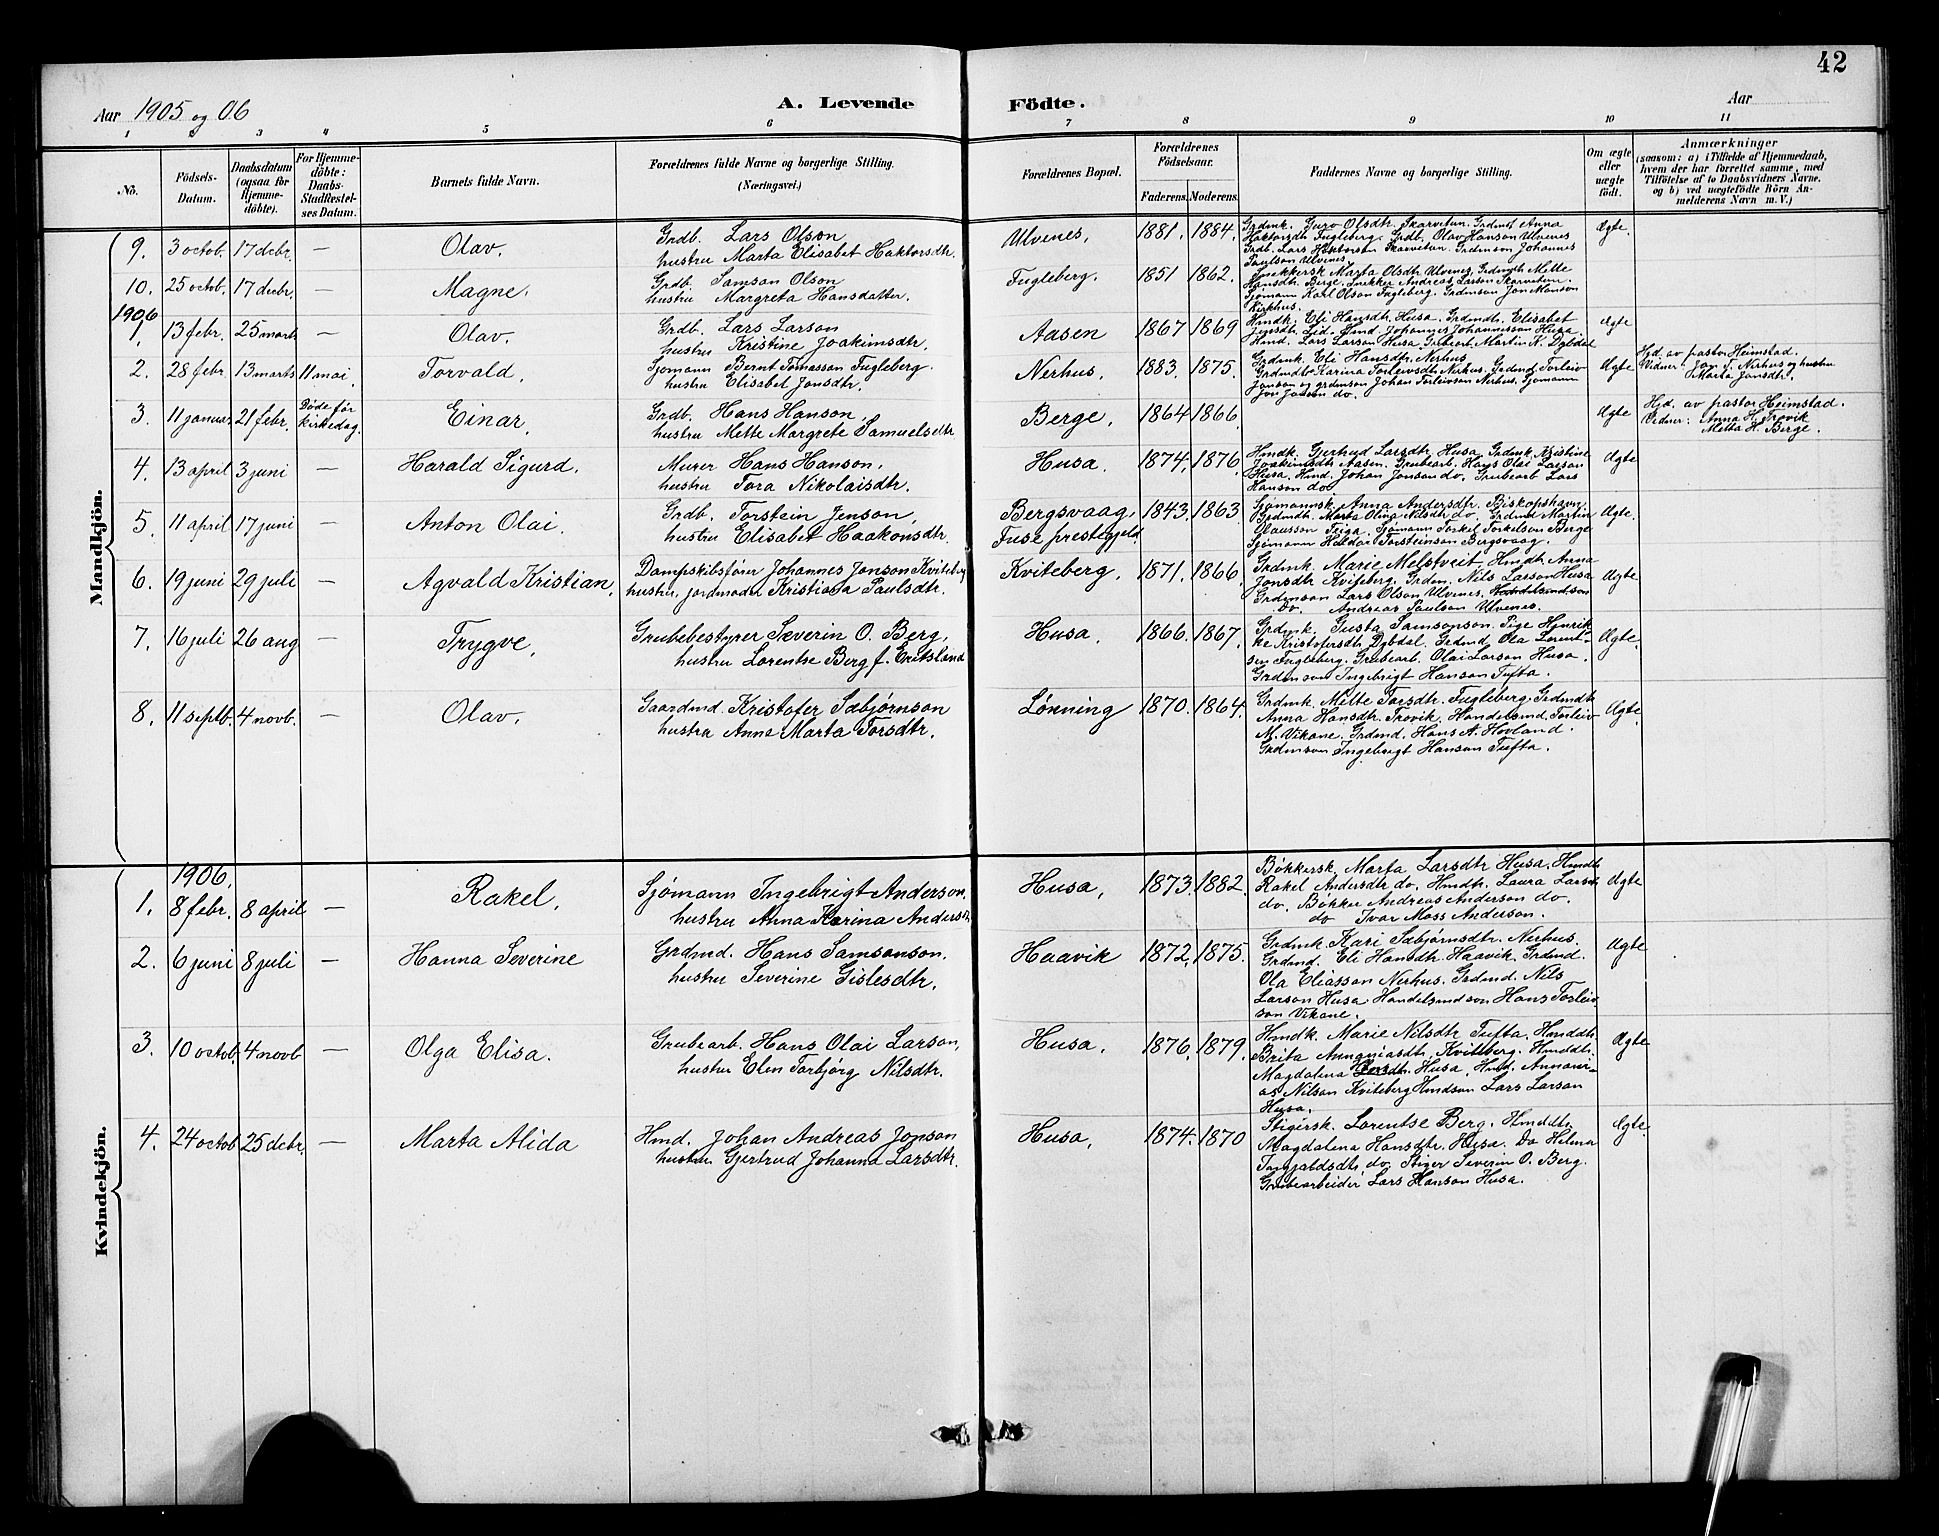 42
Aar 1905 og 06
A. Levende Födte.
Aar
1 2 3 4 5 6 7 8 9 10 11
No.
Födsels-Datum.
Daabsdatum (ogsaa for Hjemme-döbte).
For Hjemme-döbte: Daabs-Stadfæstel-ses Datum.
Barnets fulde Navn.
Forældrenes fulde Navne og borgerlige Stilling. (Næringsvei.)
Forældrenes Bopæl.
Forældrenes Födselsaar.
Faderens. Moderens.
Faddernes Navne og borgerlige Stilling.
Om ægte eller uægte födt.
Anmærkninger
(saasom: a) i Tilfælde af Hjemmedaab, hvem der har forrettet samme, med Tilföielse af to Daabsvidners Navne. og b) ved uægtefödte Börn An-melderens Navn m. V.)
Mandkjön.
9. 3 octob. 17 decbr. — Olav.
Grdb. Lars Olson
hustru Marta Elisabet Haktorsdtr.
Ulvenes, 1881. 1884.
Grdmk. Guro Olsdtr. Skarvetun. Grdmdt. Anna
Haktorsdtr Fugleberg. Grdb. Olav Hanson Ulvenes
Grdb. Lars Haktorson Skarvetun. Grdmson Johannes
Paulson Ulvenes.
Ægte.
10. 25 octob. 17 decbr. — Magne.
Grdb. Samson Olson
hustru Margreta Hansdatter.
Fugleberg. 1851 1862.
Snekkersk. Marta Olsdtr. Ulvenes, Grdmdtr Mette
Hansdtr. Berge. Snekker Andreas Larson Skarvetun.
Sjømann Karl Olson Fugleberg. Grdmson Jon Monson
Kirkhus.
1906
1. 13 febr. 25 marts — Olav.
Grdb. Lars Larson
hustru Kristine Joakimsdtr.
Aasen 1867 1869
Hmdk. Eli Hansdtr. Husa. Grdmdt. Elisabet
Jensdtr. Lid. Hmd. Johannes Johannesson Husa.
Hmd. Lars Larson Husa, Grubearb. Martin K. Dybdal
Ægte
2. 28 febr. 13 marts 11 mai. Torvald.
Sjømann Bernt Tomasson Fugleberg.
hustru Elisabet Jonsdtr.
Nerhus. 1883. 1875.
Grdmk. Eli Hansdtr. Nerhus
Grdmdtr Karina Torleivsdtr Nerhus. Grdmd. Torleiv
Jonson og grdmson Johan Torleivson Nerhus, Sjømann
Jon Jonson do.
Ægte
Hjd. av pastor Heimstad.
Vidner: Jon T. Nerhus og hustru
Marta Jonsdtr.
3. 11 januar 21 febr. Døde før kirkedag. Einar.
Grdb. Hans Hanson,
hustru Mette Margrete Samuelsdtr
Berge, 1864 1866.
Ægte
Hjd. av pastor Heimstad.
Vidner: Anna H. Trovik
Metta H. Berge.
4. 13 april 3 juni — Harald Sigurd.
Murer Hans Hanson.
hustru Tora Nikolaisdtr.
Husa. 1874. 1876.
Hmdk. Gjertrud Larsdtr. Husa, Grdmk. Kristine
Joakimsdtr Aasen. Grubearb. Hans Olai Larson
Husa. Hmd. Johan Jonson do. Grubearb Lars
Hanson do
Ægte
5. 11 april 17 juni — Anton Olai.
Grdb. Torstein Jenson,
hustru Elisabet Haakonsdtr.
Bergsvaag, Fuse prestegjeld. 1843. 1863
Sjømannsk. Anna Andersdtr. Biskopshavn,
Grdmdtr. Marta Olina Nilsdtr do. Grdmd. Martin
Olausson Teiga. Sjømann Torkel Torkelson Berge
Sjømann Haldor Torsteinson Bergsvaag.
Ægte.
6. 19 juni 29 juli — Agvald Kristian,
Dampskibsfører Johannes Jonson Kviteberg
hustru, jordmoder Kristiana Paulsdtr.
Kviteberg. 1871. 1866.
Grdmk. Marie Melstveit, Hmdtr. Anna
Jonsdtr Kviteberg. Grdm. Nils Larson Husa
Grdmson Lars Olson Ulvenes, Handelsmd.son
do. Andreas Paulson Ulvenes.
Ægte
7. 16 juli 26 aug — Trygve,
Grubebestyrer Severin O. Berg,
hustru Lorentse Berg f. Eritsland
Husa. 1866. 1867.
Grdmk. Gusta Samsonson. Pige Henrik-
ke Kristofersdtr Dybdal. Grdmd. Ola Lorent-
sen Fugleberg. Grubearb. Olai Larson Husa.
Grdmson Ingebrigt Hanson Tufta.
Ægte.
8. 11 septb. 4 novb. — Olav.
Gaardmd. Kristofer Sæbjørnson
hustru Anna Marta Torsdtr.
Lønning 1870. 1864.
Grdmk. Mette Torsdtr. Fugleberg. Grdmdtr
Anna Hansdtr. Trovik. Handelsmd. Torleiv
M. Vikane. Grdmd. Hans A. Hovland.
Grdmson Ingebrigt Hanson Tufta.
Ægte.
Kvindekjön.
1906.
1. 8 febr. 8 april — Rakel.
Sjømann Ingebrigt Anderson.
hustru Anna Karina Andersd.
Husa, 1873. 1882.
Bøkkersk. Marta Larsdtr Husa. Hmdtr
Rakel Andersdtr do. Hmdtr. Laura Larsd.
do. Bøkker Andreas Anderson do.
do Ivar Moss Anderson.
Ægte
2. 6 juni 8 juli — Hanna Severine
Grdmd. Hans Samsonson.
hustru Severine Gislesdtr.
Haavik 1872. 1875.
Grdmk. Kari Sæbjørnsdtr. Nerhus.
Grdmd. Eli Hansdtr. Haavik. Grdmd.
Ola Eliasson Nerhus. Grdmd. Nils
Larson Husa. Handelsmdson Hans Torleiv-
son Vikane.
Ægte
3. 10 octob. 4 novb — Olga Elisa.
Grubearb. Hans Olai Larson,
hustru Elen Torbjørg Nilsdtr.
Husa. 1876. 1879.
Hmdk. Marie Nilsdtr Tufta. Hmddtr.
Brita Annaniasdtr. Kviteberg. Hmddtr.
Magdalena Husa. Hmd. Annani-
as Nilson Kviteberg Hmdson Lars Larson
Husa.
Ægte
4. 24 octob 25 decbr. — Marta Alida
Hmd. Johan Andreas Jonson
hustru Gjertrud Johanna Larsdtr.
Husa, 1874. 1870
Stigersk. Lorentse Berg. Hmddtr.
Magdalena Hansdtr. Husa. Do Helena
Ingjaldsdtr. do. Stiger Severin O. Berg.
Grubearbeider Lars Hanson Husa.
Ægte.